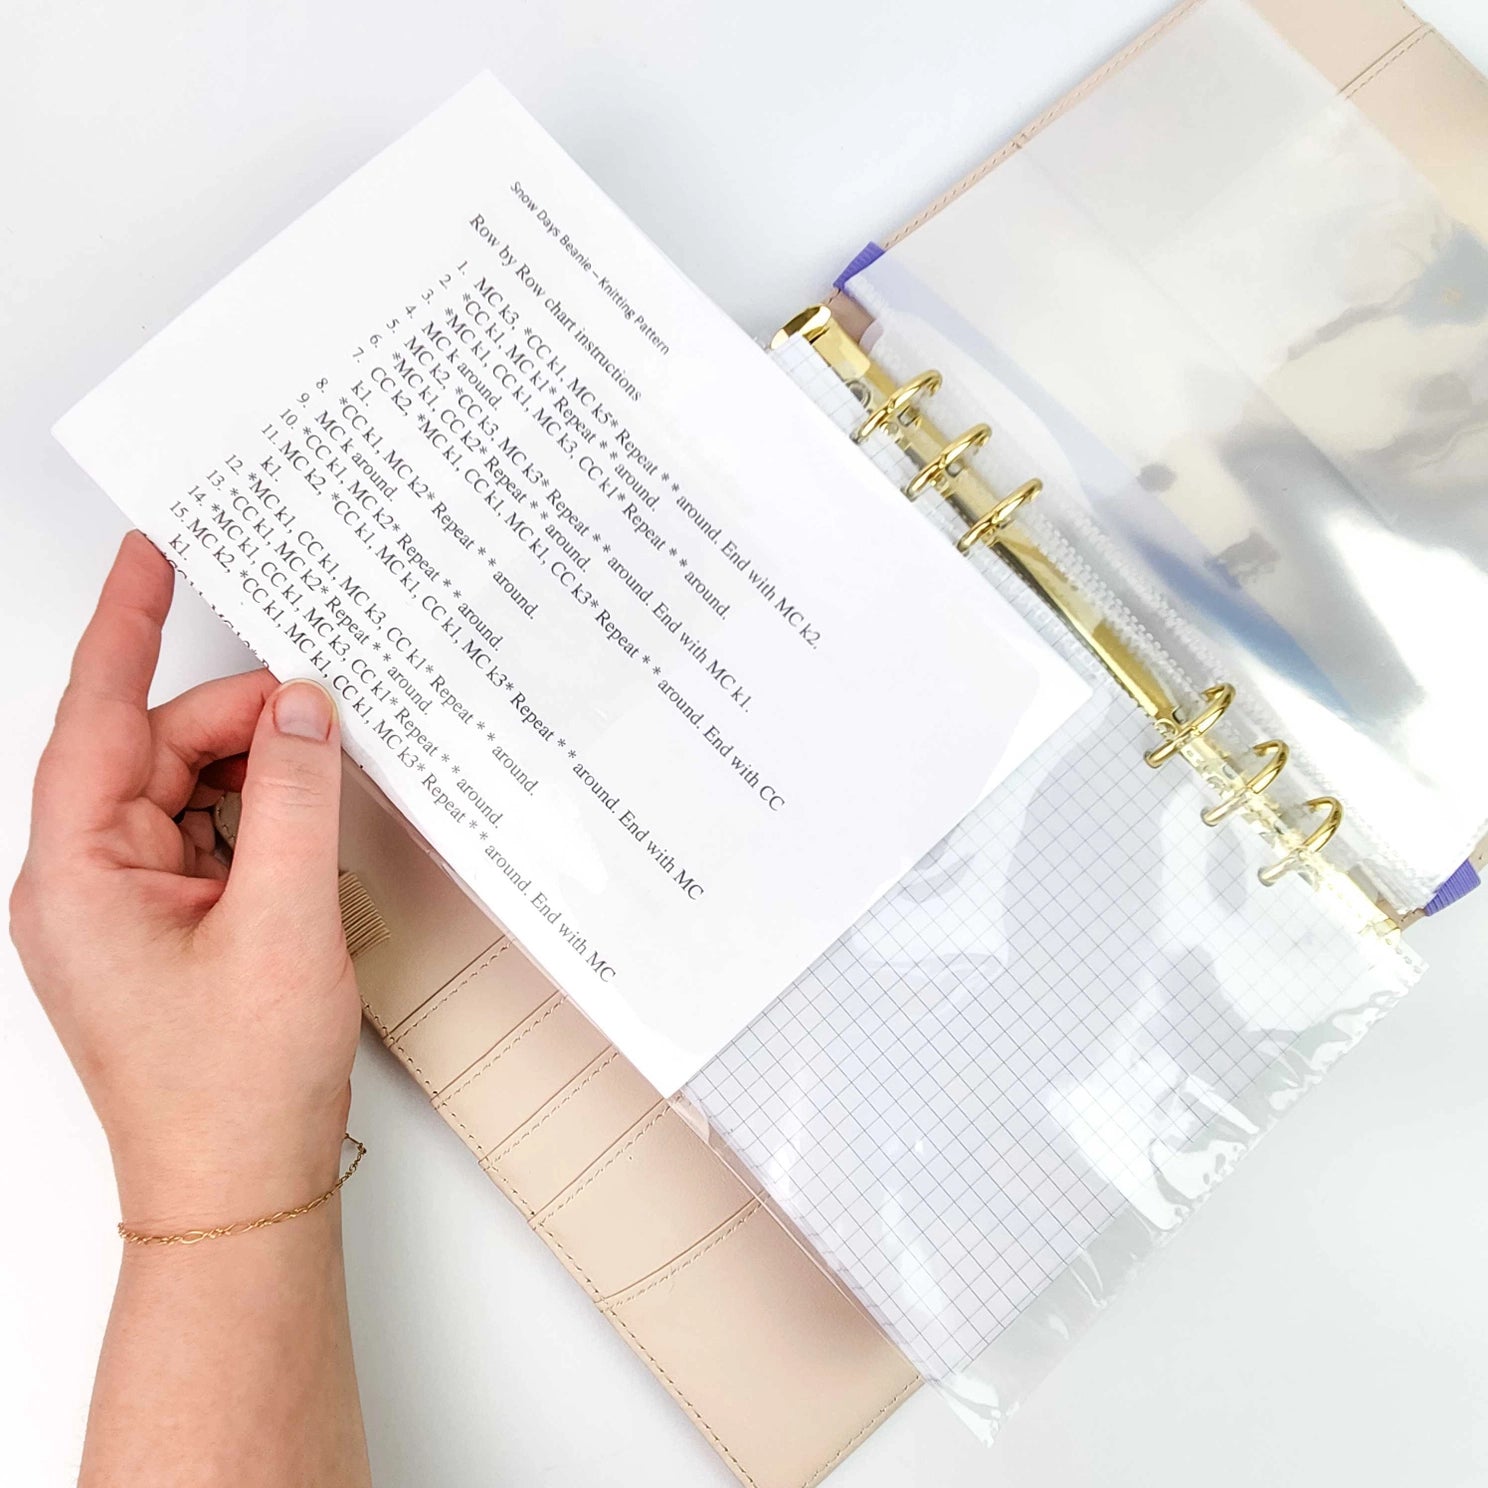 Snow Days Beanie – Knitting Pattern
Row by Row chart instructions
1. MC k3, *CC k1, MC k5* Repeat * * around. End with MC k2.
2. *CC k1, MC k1* Repeat * * around.
3. *MC k1, CC k1, MC k3, CC k1* Repeat * * around.
4. MC k around.
5. MC k2, *CC k3, MC k3* Repeat * * around. End with MC k1.
6. *MC k1, CC k2* Repeat * * around.
7. CC k2, *MC k1, CC k1, MC k1, CC k3* Repeat * * around. End with CC
k1.
8. *CC k1, MC k2* Repeat * * around.
9. MC k around.
10. *CC k1, MC k2* Repeat * * around.
11. MC k2, *CC k1, MC k1, CC k1, MC k3* Repeat * * around. End with MC
k1.
12. *MC k1, CC k1, MC k3, CC k1* Repeat * * around.
13. *CC k1, MC k2* Repeat * * around.
14. *MC k1, CC k1, MC k3, CC k1* Repeat * * around.
15 MC k2, *CC k1, MC k1, CC k1, MC k3* Repeat * * around. End with MC
k1.